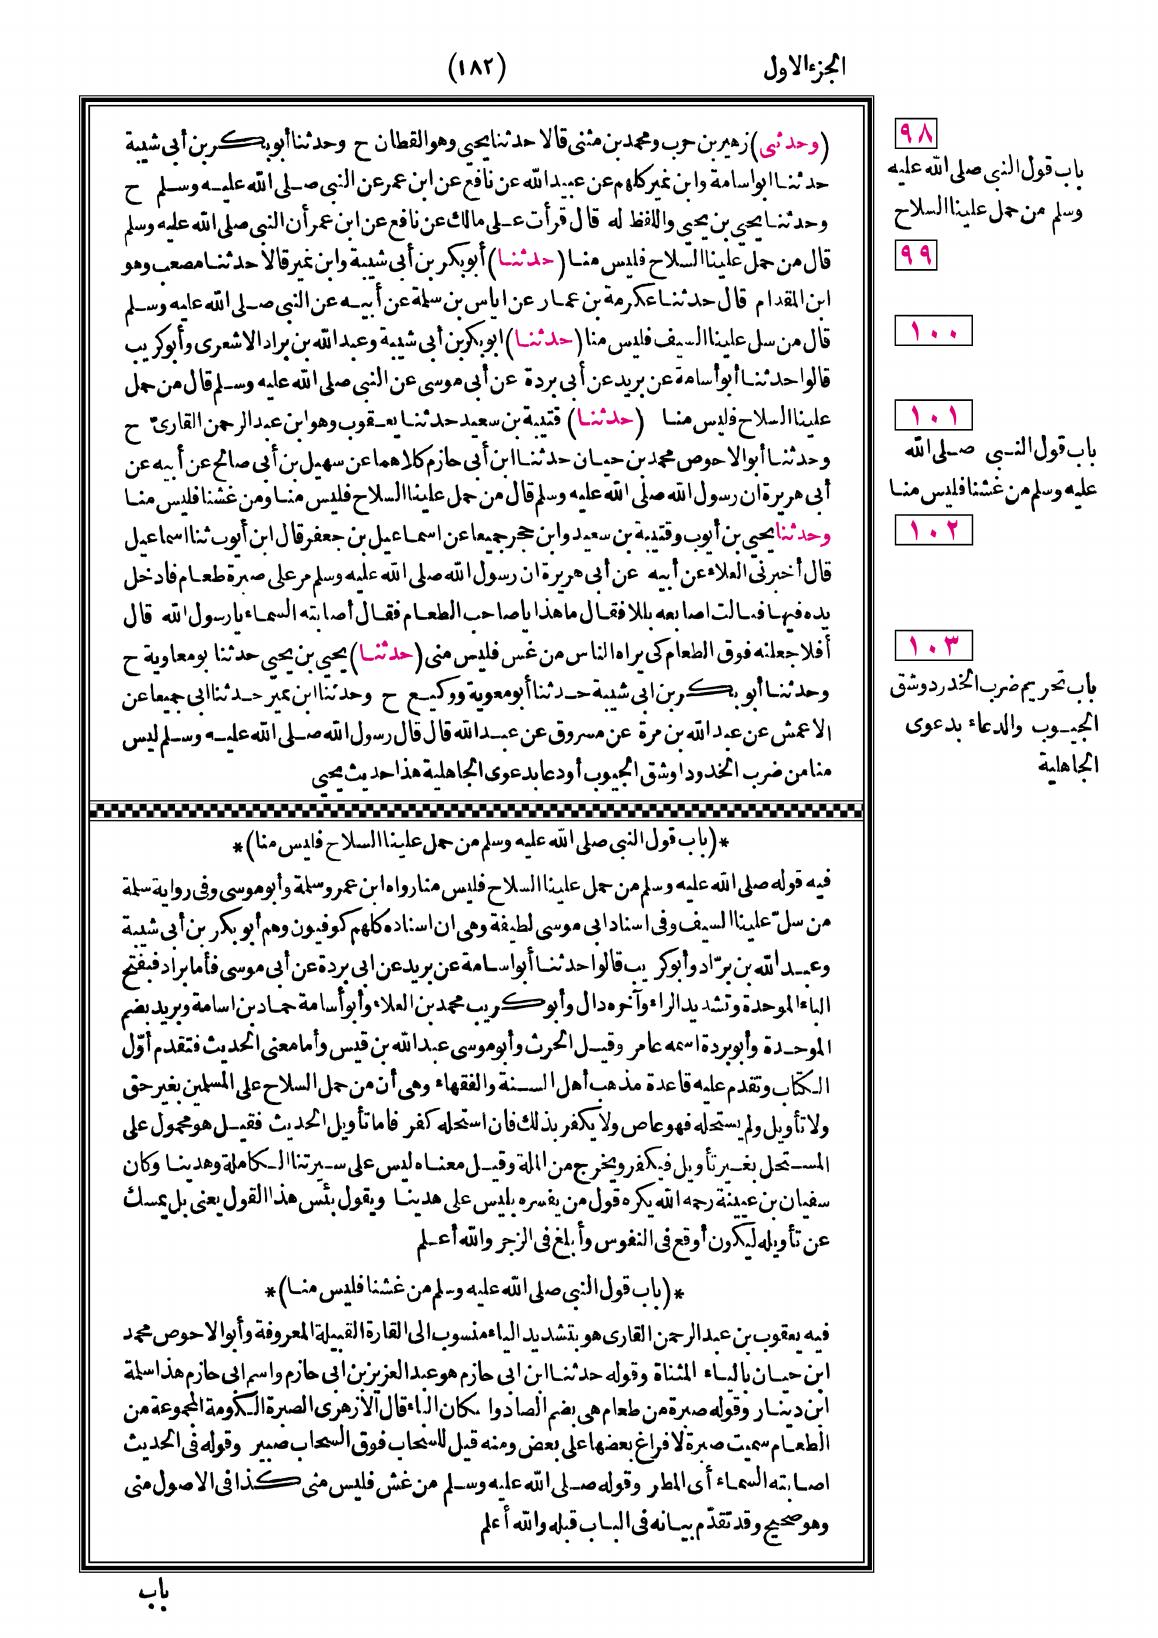 الجزء الاول
(١٨٢)
(وحدثنى) زهير بن حرب ومحمد بن مثنى قالا حدثنا يحيى وهو القطان ح وحدثنا أبو بكر بن أبى شيبة
حدثنا ابو اسامة وابن نمير كلهم عن عبيد الله عن نافع عن ابن عمر عن النبى صلى الله عليه وسلم ح
وحدثنا يحيى بن يحيى واللفظ له قال قرأت على مالك عن نافع عن ابن عمر أن النبى صلى الله عليه وسلم
قال من حمل علينا السلاح فليس منا (حدثنا) أبو بكر بن أبى شيبة وابن نمير قالا حدثنا مصعب وهو
ابن المقدام قال حدثنا عكرمة بن عمار عن اياس بن سلمة عن أبيه عن النبى صلى الله عليه وسلم
قال من سل علينا السيف فليس منا (حدثنا) ابو بكر بن أبى شيبة وعبد الله بن براد الاشعرى وأبو كريب
قالوا حدثنا أبو أسامة عن بريد عن أبى بردة عن أبى موسى عن النبى صلى الله عليه وسلم قال من حمل
علينا السلاح فليس منا (حدثنا) قتيبة بن سعيد حدثنا يعقوب وهو ابن عبد الرحمن القارىّ ح
وحدثنا أبو الاحوص محمد بن حيان حدثنا ابن أبى حازم كلاهما عن سهيل بن أبى صالح عن أبيه عن
أبى هريرة ان رسول الله صلى الله عليه وسلم قال من حمل علينا السلاح فليس منا ومن غشنا فليس منا
وحدثنا يحيى بن أيوب وقتيبة بن سعيد وابن حجر جميعا عن اسماعيل بن جعفر قال ابن أيوب ثنا اسماعيل
قال أخبرنى العلاء عن أبيه عن أبى هريرة ان رسول الله صلى الله عليه وسلم مر على صبرة طعام فادخل
يده فيها فنالت اصابعه بللا فقال ما هذا يا صاحب الطعام فقال أصابته السماء يا رسول الله قال
أفلا جعلته فوق الطعام كى يراه الناس من غش فليس منى (حدثنا) يحيى بن يحيى حدثنا بو معاوية ح
وحدثنا أبو بكر بن ابى شيبة حدثنا أبو معوية ووكيع ح وحدثنا ابن نمير حدثنا ابى جميعا عن
الاعمش عن عبد الله بن مرة عن مسروق عن عبد الله قال قال رسول الله صلى الله عليه وسلم ليس
منا من ضرب الخدود اوشق الجيوب أو دعا بدعوى الجاهلية هذا حديث يحيى
٩٨
باب قول النبى صلى الله عليه
وسلم من حمل علينا السلاح
٩٩
١٠٠
١٠١
باب قول النبى صلى الله
عليه وسلم من غشنا فليس منا
١٠٢
١٠٣
باب تحريم ضرب الخدر دوشق
الجيوب والدعاء بدعوى
الجاهلية
*(باب قول النبى صلى الله عليه وسلم من حمل علينا السلاح فليس منا)*
فيه قوله صلى الله عليه وسلم من حمل علينا السلاح فليس منا رواه ابن عمر وسلمة وأبو موسى وفى رواية سلمة
من سلّ علينا السيف وفى اسناد ابى موسى لطيفة وهى ان اسناده كلهم كوفيون وهم أبو بكر بن أبى شيبة
وعبد الله بن برّاد وأبو كريب قالوا حدثنا أبو اسامة عن بريد عن ابى بردة عن أبى موسى فأما براد فبفتح
الباء الموحدة وتشديد الراء وآخره دال وأبو كريب محمد بن العلاء وأبو أسامة حماد بن اسامة وبريد بضم
الموحدة وأبو بردة اسمه عامر وقيل الحرث وأبو موسى عبد الله بن قيس وأما معنى الحديث فتقدم أوّل
الكتاب وتقدم عليه قاعدة مذهب أهل السنة والفقهاء وهى أن من حمل السلاح على المسلمين بغير حق
ولا تأويل ولم يستحله فهو عاص ولا يكفر بذلك فان استحله كفر فاما تأويل الحديث فقيل هو محمول على
المستحل بغير تأويل فيكفر ويخرج من الملة وقيل معناه ليس على سيرتنا الكاملة وهدينا وكان
سفيان بن عيينة رحمه الله يكره قول من يفسره بليس على هدينا ويقول بئس هذا القول يعنى بل يمسك
عن تأويله ليكون أوقع فى النفوس وأبلغ فى الزجر والله أعلم
*(باب قول النبى صلى الله عليه وسلم من غشنا فليس منا)*
فيه يعقوب بن عبد الرحمن القارى هو بتشديد الياء منسوب الى القارة القبيلة المعروفة وأبو الاحوص محمد
ابن حيان بالياء المثناة وقوله حدثنا ابن ابى حازم هو عبد العزيز بن ابى حازم واسم ابى حازم هذا سلمة
ابن دينار وقوله صبرة من طعام هى بضم الصاد واسكان الباء قال الازهرى الصبرة الكومة المجموعة من
الطعام سميت صبرة لافراغ بعضها على بعض ومنه قيل للسحاب فوق السحاب صبير وقوله فى الحديث
اصابته السماء أى المطر وقوله صلى الله عليه وسلم من غش فليس منى كذا فى الاصول منى
وهو صحيح وقد تقدّم بيانه فى الباب قبله والله أعلم
باب